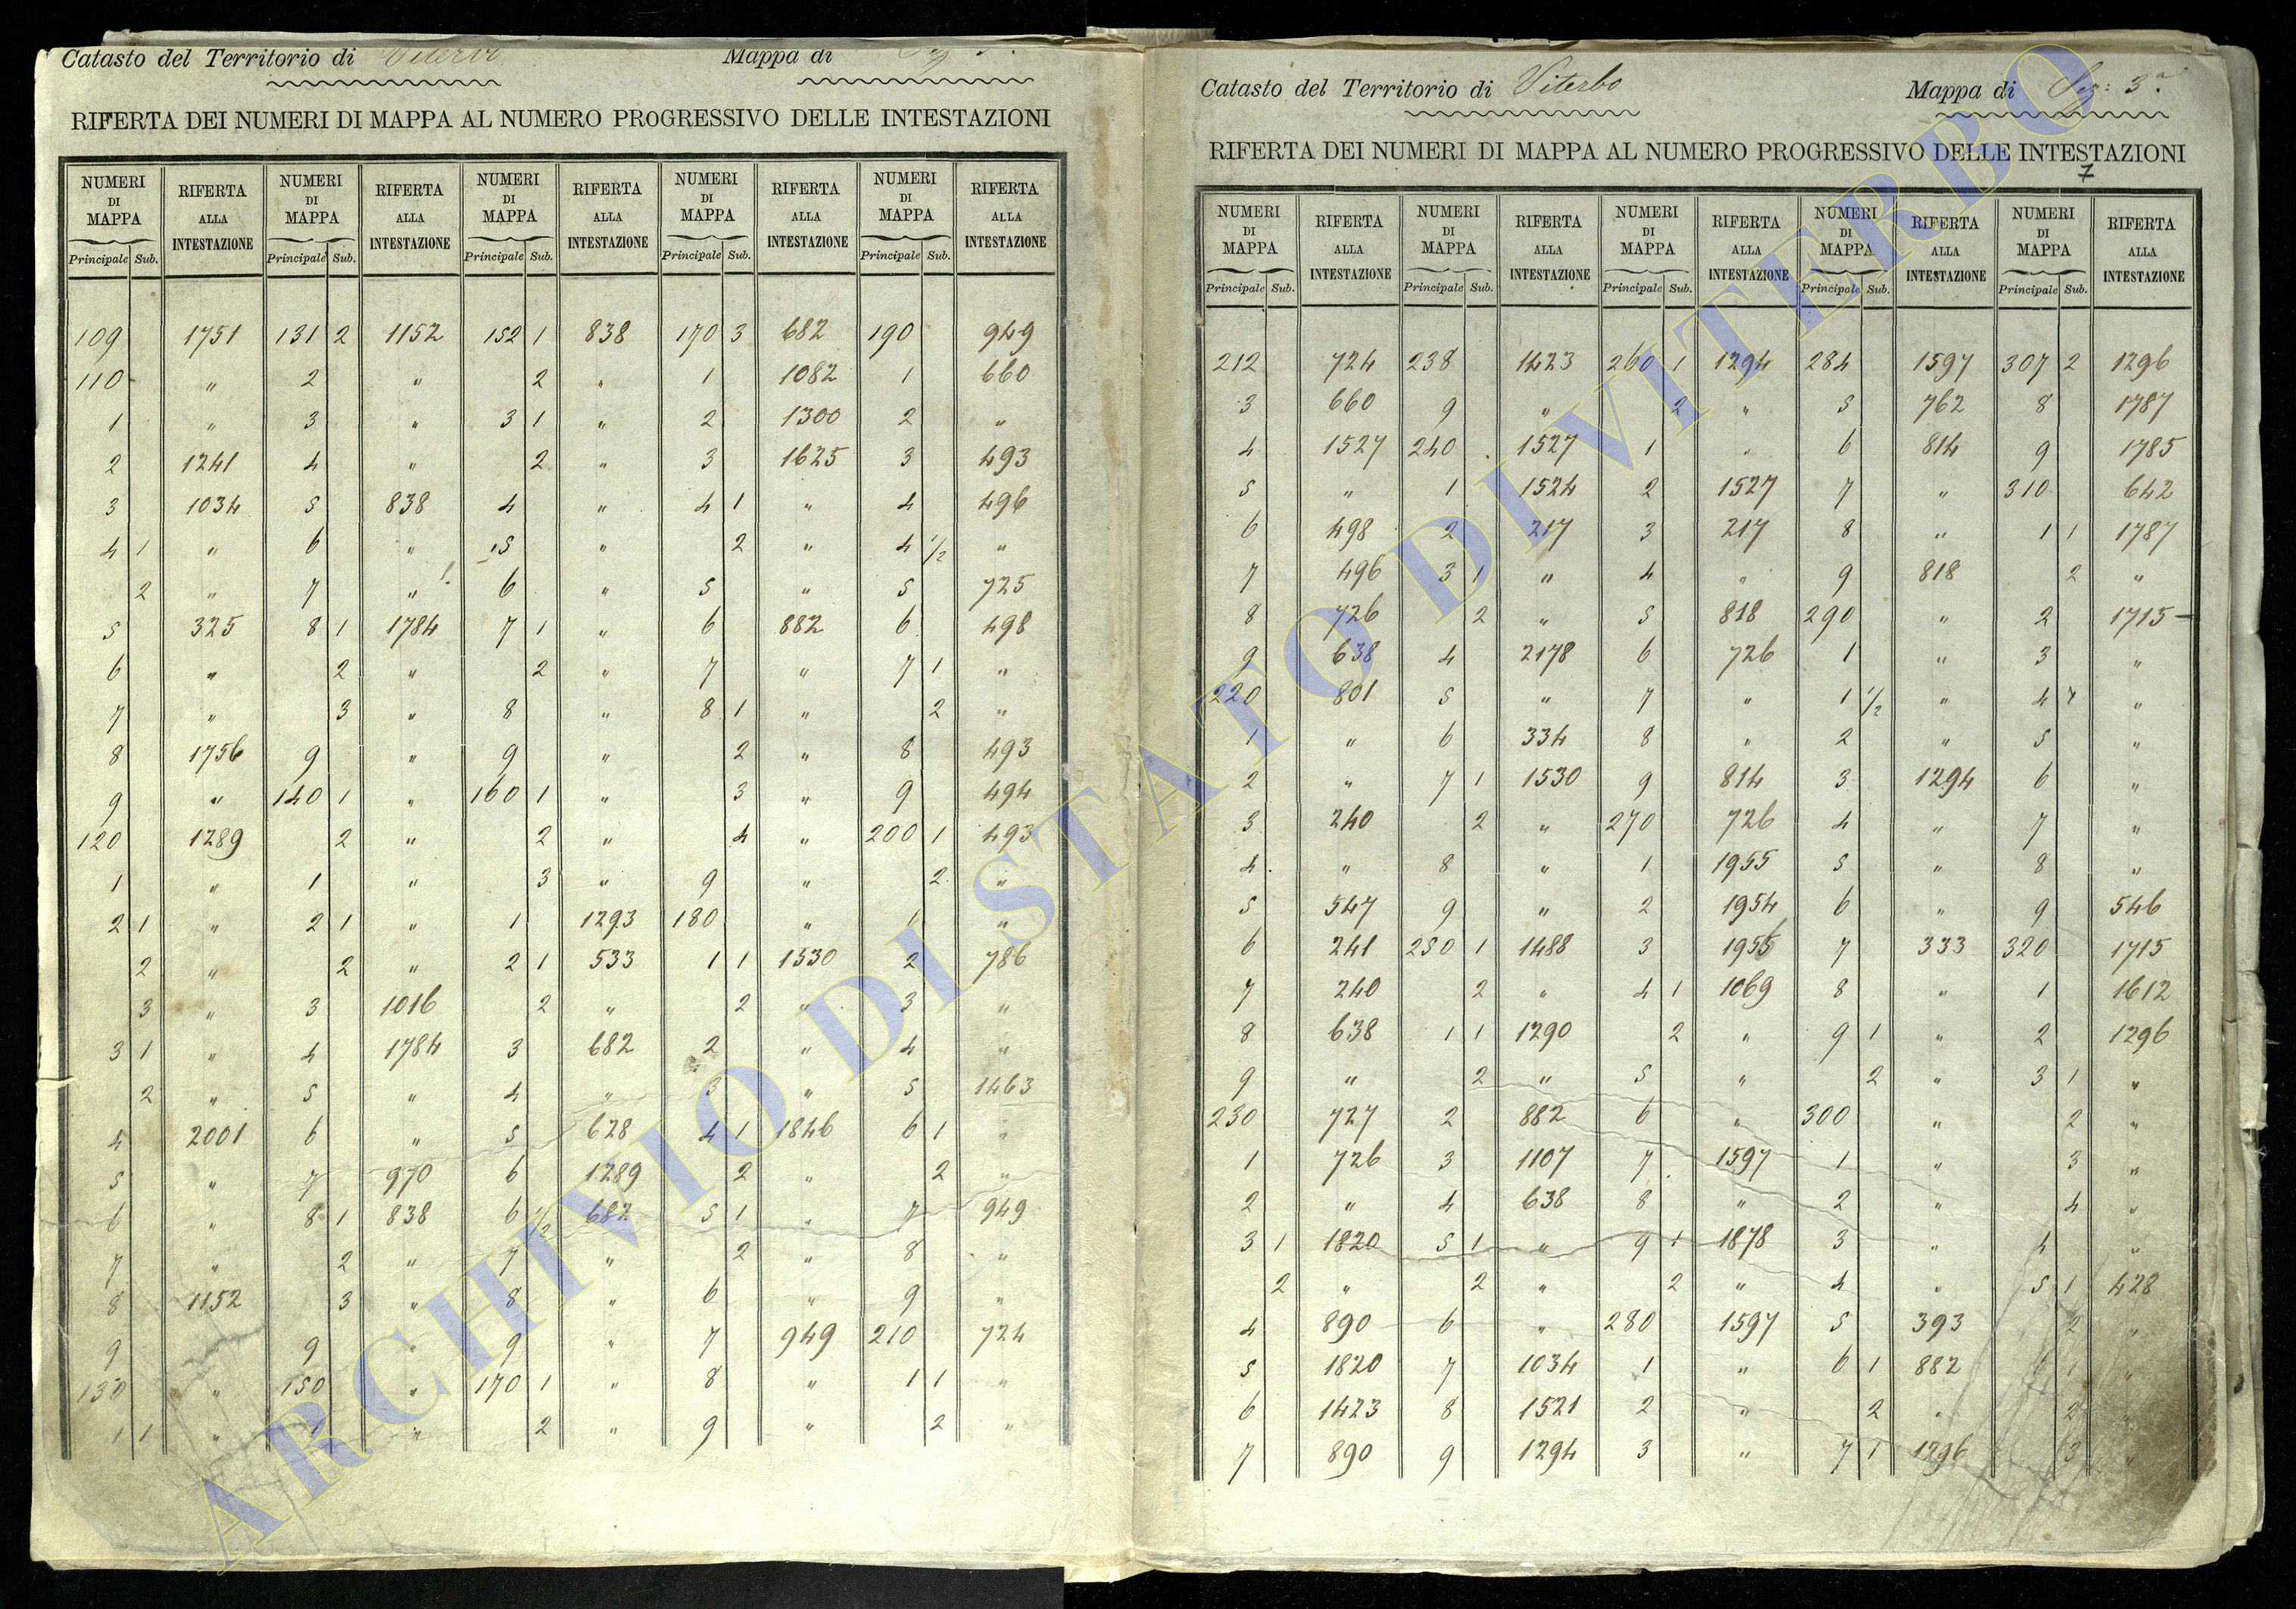 Catasto del Territorio di Viterbo Mappa di
RIFERTA DEI NUMERI DI MAPPA AL NUMERO PROGRESSIVO DELLE INTESTAZIONI
NUMERI DI MAPPA RIFERTA ALLA INTESTAZIONE NUMERI DI MAPPA RIFERTA ALLA INTESTAZIONE NUMERI DI MAPPA RIFERTA ALLA INTESTAZIONE NUMERI DI MAPPA RIFERTA ALLA INTESTAZIONE NUMERI DI MAPPA RIFERTA ALLA INTESTAZIONE
Principale Sub. Principale Sub. Principale Sub. Principale Sub. Principale Sub.
109 1751 131 2 1152 152 1 838 170 3 682 190 949
110 " 2 " 2 " 1 1082 1 660
1 " 3 " 3 1 " 2 1300 2 "
2 1241 4 " 2 " 3 1625 3 493
3 1034 5 838 4 " 4 1 " 4 496
4 1 " 6 " 5 " 2 " 4 1/2 "
2 " 7 " 6 " 5 " 5 725
5 325 8 1 1784 7 1 " 6 882 6 498
6 " 2 " 2 " 7 " 7 1 "
7 " 3 " 8 " 8 1 " 2 "
8 1756 9 " 9 " 2 " 8 493
9 " 140 1 " 160 1 " 3 " 9 494
120 1289 2 " 2 " 4 " 200 1 493
1 " 1 " 3 " 9 " 2 "
2 1 " 2 1 " 1 1293 180 " 1 "
2 " 2 " 2 1 533 1 1 1530 2 786
3 " 3 1016 2 " 2 " 3 "
3 1 " 4 1784 3 682 2 " 4 "
2 " 5 " 4 " 3 " 5 1463
4 2001 6 " 5 628 4 1 1846 6 1 "
5 " 7 970 6 1289 2 " 2 "
6 " 8 1 838 6 1/2 682 5 1 " 7 949
7 " 2 " 7 " 2 " 8 "
8 1152 3 " 8 " 6 " 9 "
9 " 9 " 9 " 7 949 210 724
130 " 150 " 170 1 " 8 " 1 1 "
1 1 " 1 " 2 " 9 " 2 "
Catasto del Territorio di Viterbo Mappa di Sez: 3ª
RIFERTA DEI NUMERI DI MAPPA AL NUMERO PROGRESSIVO DELLE INTESTAZIONI
7
NUMERI DI MAPPA RIFERTA ALLA INTESTAZIONE NUMERI DI MAPPA RIFERTA ALLA INTESTAZIONE NUMERI DI MAPPA RIFERTA ALLA INTESTAZIONE NUMERI DI MAPPA RIFERTA ALLA INTESTAZIONE NUMERI DI MAPPA RIFERTA ALLA INTESTAZIONE
Principale Sub. Principale Sub. Principale Sub. Principale Sub. Principale Sub.
212 724 238 1423 260 1 1294 284 1597 307 2 1296
3 660 9 " 2 " 5 762 8 1787
4 1527 240 1527 1 " 6 814 9 1785
5 " 1 1524 2 1527 7 " 310 642
6 498 2 217 3 217 8 " 1 1 1787
7 496 3 1 " 4 " 9 818 2 "
8 726 2 " 5 818 290 " 2 1715
9 638 4 2178 6 726 1 " 3 "
220 801 5 " 7 " 1 1/2 " 4 "
1 " 6 334 8 " 2 " 5 "
2 " 7 1 1530 9 814 3 1294 6 "
3 240 2 " 270 726 4 " 7 "
4 " 8 " 1 1955 5 " 8 "
5 547 9 " 2 1954 6 " 9 546
6 241 250 1 1488 3 1955 7 333 320 1715
7 240 2 " 4 1 1069 8 " 1 1612
8 638 1 1 1290 2 " 9 1 " 2 1296
9 " 2 " 5 " 2 " 3 1 "
230 727 2 882 6 " 300 " 2 "
1 726 3 1107 7 1597 1 " 3 "
2 " 4 638 8 " 2 " 4 "
3 1 1820 5 1 " 9 1 1878 3 " 4 "
2 " 2 " 2 " 4 " 5 1 428
4 890 6 " 280 1597 5 393 2 "
5 1820 7 1034 1 " 6 1 882 6 1 "
6 1423 8 1521 2 " 2 " 2 "
7 890 9 1294 3 " 7 1 1296 3 "
ARCHIVIO DI STATO DI VITERBO